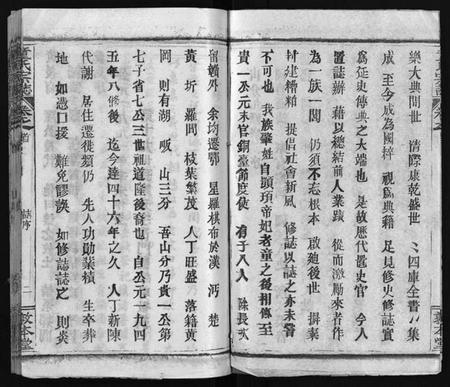 樂大典開世 清際康乾盛世 四庫全書集
成 至今成為國粹 視為典籍 足見修史修誌實
為延史傳典之大端也 是故歷代置史官 今人
置誌辦 藉以總結前人業蹟 從而激勵來者作
為一族一閭 仍須不忘根本 啟廸後世 摒棄
封建糟粕 提倡社會新風 修誌以誌之亦未嘗
不可也 我族肇姓自顓頊帝妃老童之後相傳至
貴一公元末官銅堂節度使 有子八人 除長
留贛外 余均遷鄂 星羅棋布於漢 沔 楚
黃 圻 羅田 枝葉繁茂 人丁旺盛 落籍黃
岡 則有湖 吸 山三分 吾山分乃貴一公第
七子省七公三世祖道隆後裔也 自公元一九四
五年八修後 迄今達四十六年之久 人丁新陳
代謝 居住遷徙頻仍 先人功勛業積 生卒葬
地 如憑口授 難免謬誤 如修誌誌之 則炎
宗誌
敦本堂